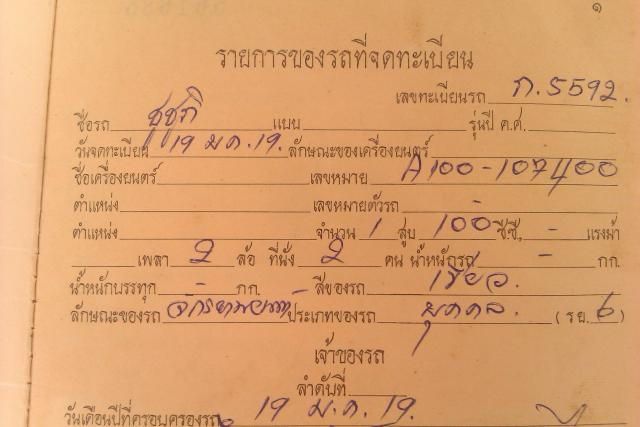 ๑
รายการของรถที่จดทะเบียน
เลขทะเบียนรถ ก.5592.
ชื่อรถ ซูซูกิ แบบ รุ่นปี ค.ศ.
วันจดทะเบียน 19 ม.ค. 19. ลักษณะของเครื่องยนตร์
ชื่อเครื่องยนตร์ เลขหมาย A100-107400
ตำแหน่ง เลขหมายตัวรถ -
ตำแหน่ง จำนวน 1 สูบ 100 ซีซี, - แรงม้า
เพลา 2 ล้อ ที่นั่ง 2 คน น้ำหนักรถ - กก.
น้ำหนักบรรทุก - กก. - สีของรถ เขียว.
ลักษณะของรถ จักรยานยนต์ ประเภทของรถ บุคคล. (รย. 6)
เจ้าของรถ
ลำดับที่
วันเดือนปีที่ครอบครองรถ 19 ม.ค. 19.